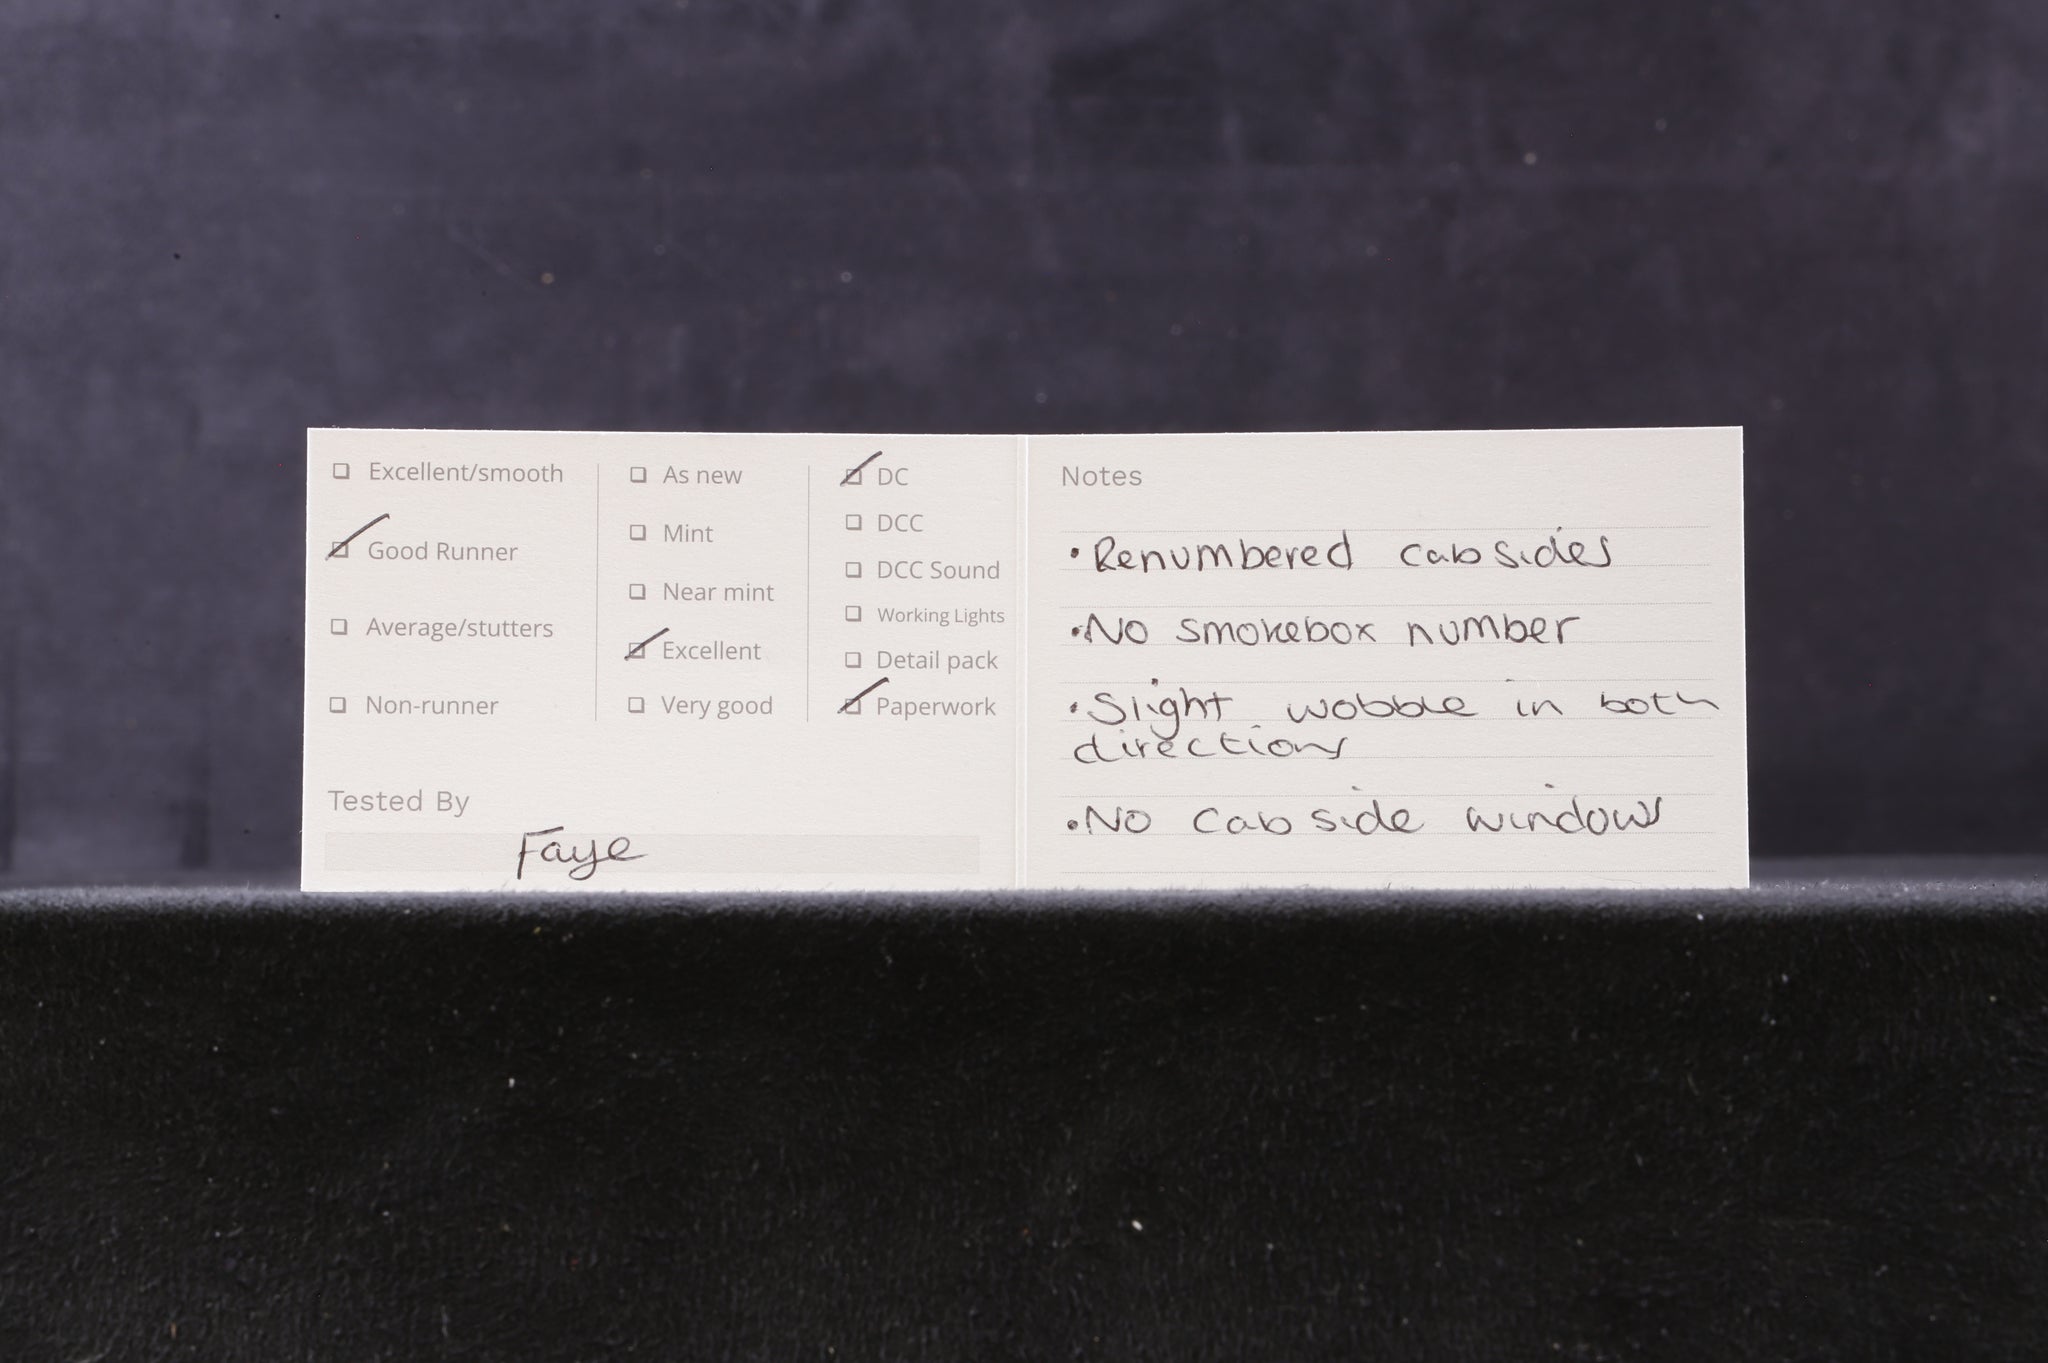 ☐ Excellent/smooth
☑ Good Runner
☐ Average/stutters
☐ Non-runner
☐ As new
☐ Mint
☐ Near mint
☑ Excellent
☐ Very good
☑ DC
☐ DCC
☐ DCC Sound
☐ Working Lights
☐ Detail pack
☑ Paperwork
Tested By
Faye
Notes
• Renumbered cab sides
• No smokebox number
• Slight wobble in both
directions
• No cab side windows